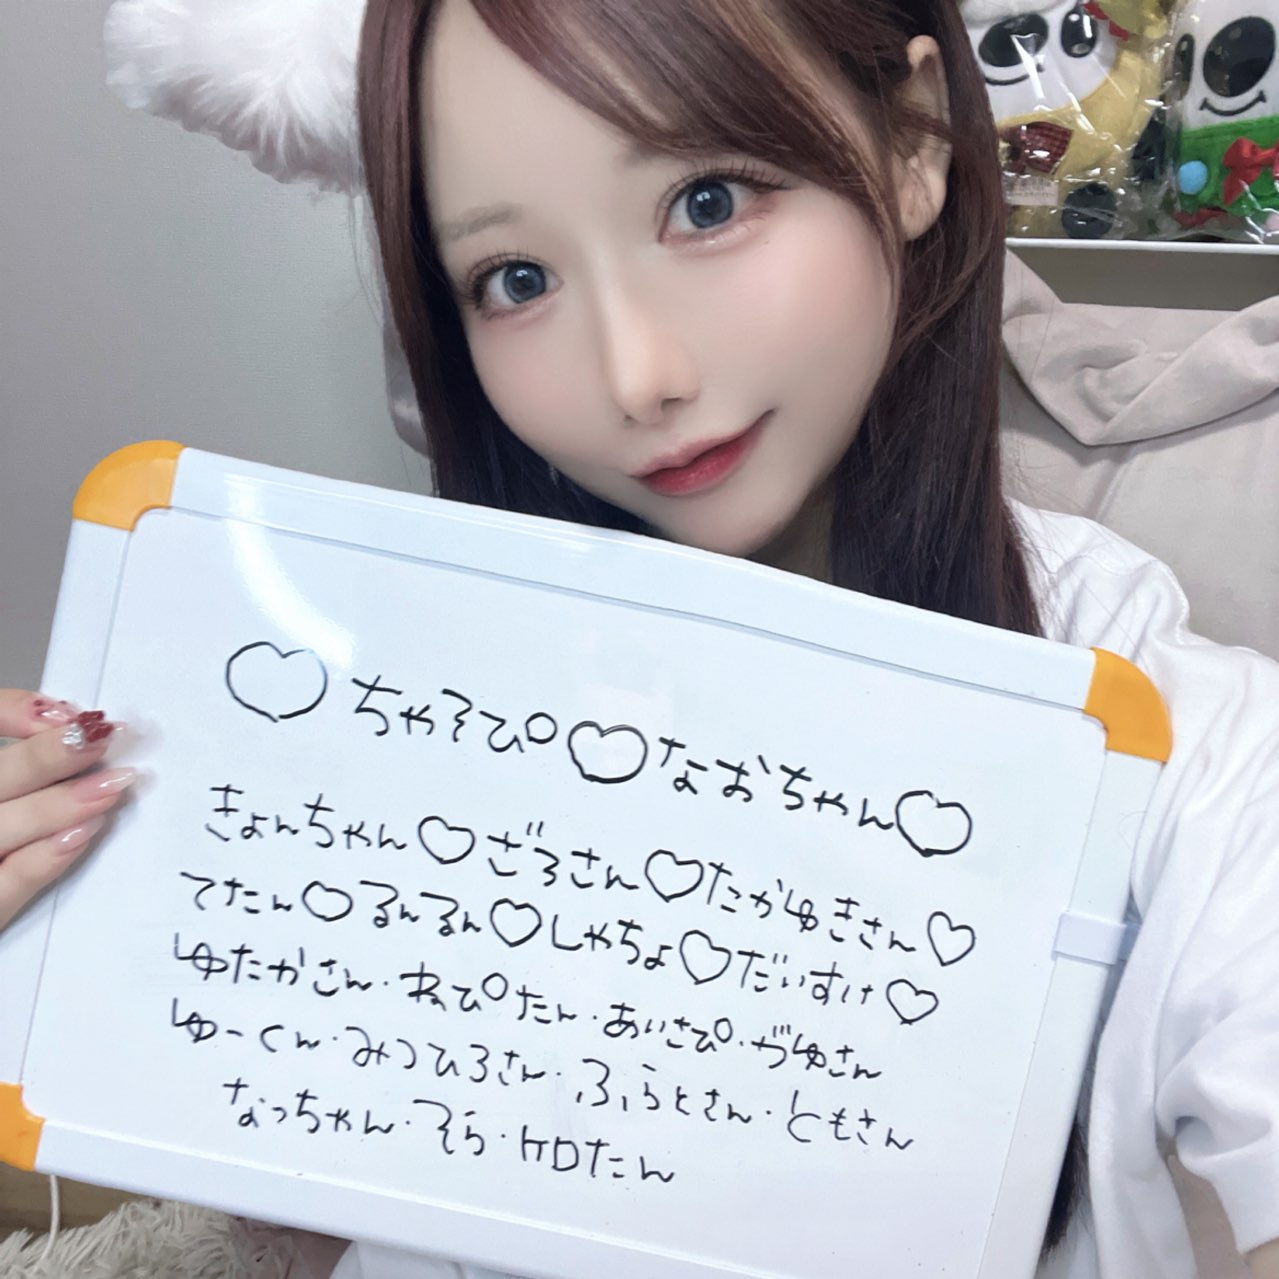 ♡ちゃそぴ♡なおちゃん♡
きょんちゃん♡ざろさん♡たかゆきさん♡
てたん♡るんるん♡しゃちょ♡だいすけ♡
ゆたかさん・ねぴたん・あいさぴ・がゆさん
ゆーくん・みつひろさん・ふらとさん・ともさん
なっちゃん・そら・ケロたん